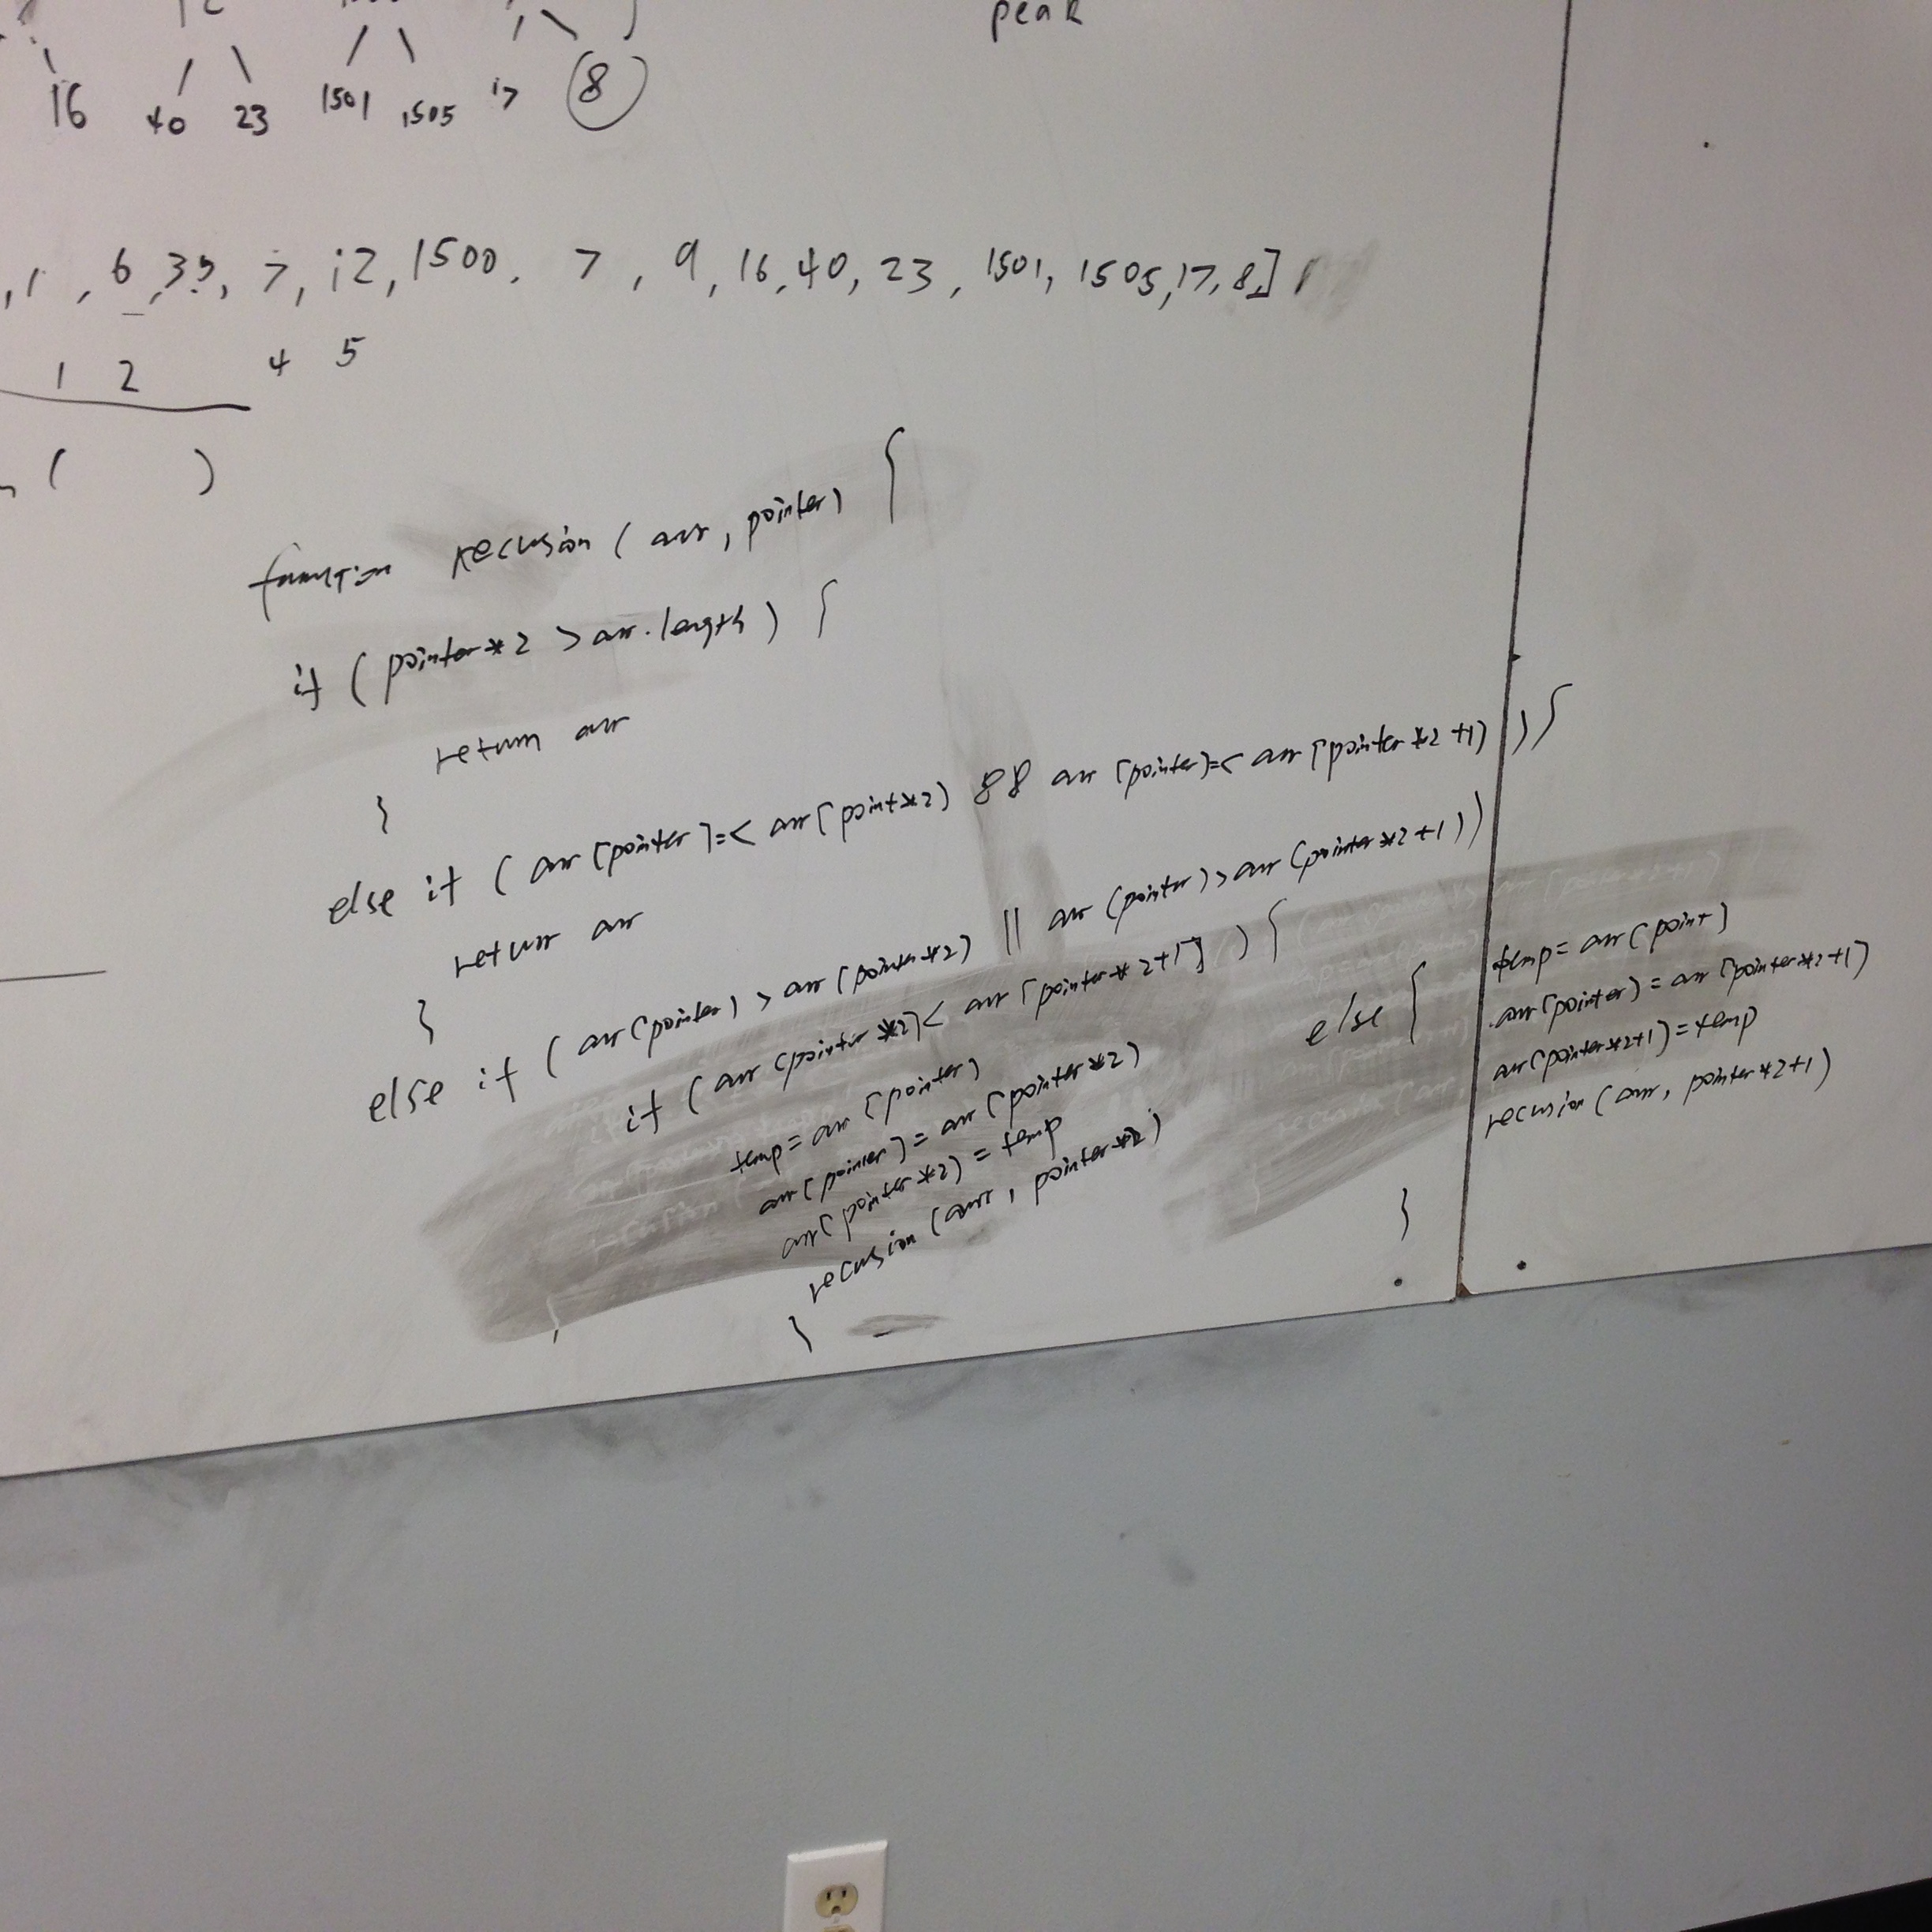 peak
16 40 23 1501 1505 17 8
, 1 , 6, 35, 7, 12, 1500, 7, 9, 16, 40, 23, 1501, 1505, 17, 8,]
1 2 4 5
( )
function recusion ( arr, pointer) {
if ( pointer*2 > arr.length ) {
return arr
}
else if ( arr[pointer]=< arr[point*2] && arr [pointer]=< arr [pointer*2+1] ) ) {
return arr
}
else if ( arr[pointer] > arr [pointer*2] || arr [pointer] > arr [pointer*2+1] )
if ( arr [pointer*2] < arr [pointer*2+1] ) ) {
temp = arr [pointer]
arr [pointer] = arr [pointer*2]
arr [pointer*2] = temp
recusion (arr, pointer*2)
}
else {
temp= arr [point]
arr [pointer] = arr [pointer*2+1]
arr [pointer*2+1] = temp
recusion ( arr, pointer*2+1)
}